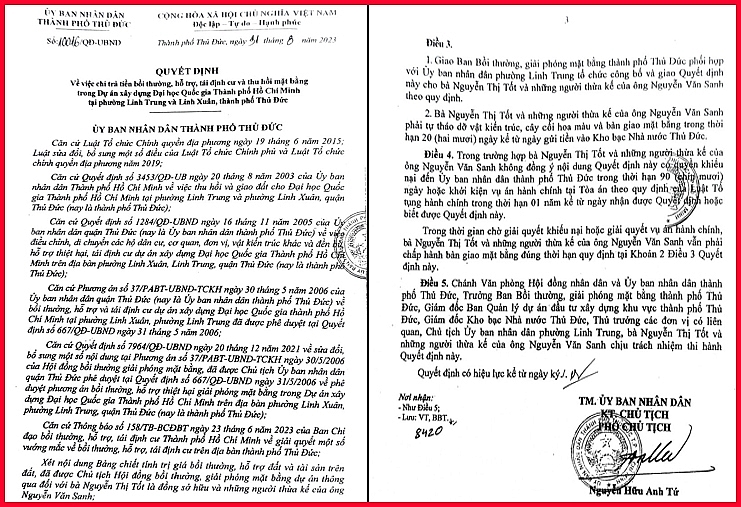 ỦY BAN NHÂN DÂN
THÀNH PHỐ THỦ ĐỨC
CỘNG HÒA XÃ HỘI CHỦ NGHĨA VIỆT NAM
Độc lập - Tự do - Hạnh phúc
Số: 10016/QĐ-UBND
Thành phố Thủ Đức, ngày 31 tháng 8 năm 2023
QUYẾT ĐỊNH
Về việc chi trả tiền bồi thường, hỗ trợ, tái định cư và thu hồi mặt bằng
trong Dự án xây dựng Đại học Quốc gia Thành phố Hồ Chí Minh
tại phường Linh Trung và Linh Xuân, thành phố Thủ Đức
ỦY BAN NHÂN DÂN THÀNH PHỐ THỦ ĐỨC
Căn cứ Luật Tổ chức Chính quyền địa phương ngày 19 tháng 6 năm 2015;
Luật sửa đổi, bổ sung một số điều của Luật Tổ chức Chính phủ và Luật Tổ chức
chính quyền địa phương năm 2019;
Căn cứ Quyết định số 3453/QĐ-UB ngày 20 tháng 8 năm 2003 của Ủy ban
nhân dân Thành phố Hồ Chí Minh về việc thu hồi và giao đất cho Đại học Quốc
gia Thành phố Hồ Chí Minh tại phường Linh Trung và phường Linh Xuân, quận
Thủ Đức (nay là thành phố Thủ Đức);
Căn cứ Quyết định số 1284/QĐ-UBND ngày 16 tháng 11 năm 2005 của Ủy
ban nhân dân quận Thủ Đức (nay là Ủy ban nhân dân thành phố Thủ Đức) về việc
điều chỉnh, di chuyển các hộ dân cư, cơ quan, đơn vị, vật kiến trúc khác và đền bù
hỗ trợ thiệt hại, tái định cư dự án xây dựng Đại học Quốc Gia Thành phố Hồ Chí
Minh trên địa bàn phường Linh Xuân, Linh Trung, quận Thủ Đức (nay là thành phố
Thủ Đức);
Căn cứ Phương án số 37/PABT-UBND-TCKH ngày 30 tháng 5 năm 2006 của
Ủy ban nhân dân quận Thủ Đức (nay là Ủy ban nhân dân thành phố Thủ Đức) về
bồi thường, hỗ trợ và tái định cư dự án xây dựng Đại học Quốc gia thành phố Hồ
Chí Minh tại phường Linh Xuân, phường Linh Trung đã được phê duyệt tại Quyết
định số 667/QĐ-UBND ngày 31 tháng 5 năm 2006;
Căn cứ Quyết định số 7964/QĐ-UBND ngày 20 tháng 12 năm 2021 về sửa đổi,
bổ sung một số nội dung tại Phương án số 37/PABT-UBND-TCKH ngày 30/5/2006
của Hội đồng bồi thường giải phóng mặt bằng, đã được Chủ tịch Ủy ban nhân dân
quận Thủ Đức phê duyệt tại Quyết định số 667/QĐ-UBND ngày 31/5/2006 về phê
duyệt phương án bồi thường, hỗ trợ thiệt hại giải phóng mặt bằng trong Dự án xây
dựng Đại học Quốc gia Thành phố Hồ Chí Minh trên địa bàn phường Linh Xuân,
phường Linh Trung, quận Thủ Đức (nay là thành phố Thủ Đức);
Căn cứ Thông báo số 158/TB-BCĐBT ngày 23 tháng 6 năm 2023 của Ban Chỉ
đạo bồi thường, hỗ trợ, tái định cư Thành phố Hồ Chí Minh về giải quyết một số
vướng mắc về bồi thường, hỗ trợ, tái định cư trên địa bàn thành phố Thủ Đức;
Xét nội dung Bảng chiết tính trị giá bồi thường, hỗ trợ đất và tài sản trên
đất, đã được Chủ tịch Hội đồng bồi thường, giải phóng mặt bằng dự án thông
qua đối với bà Nguyễn Thị Tốt là đồng sở hữu và những người thừa kế của ông
Nguyễn Văn Sanh;
3
Điều 3.
1. Giao Ban Bồi thường, giải phóng mặt bằng thành phố Thủ Đức phối hợp
với Ủy ban nhân dân phường Linh Trung tổ chức công bố và giao Quyết định
này cho bà Nguyễn Thị Tốt và những người thừa kế của ông Nguyễn Văn Sanh
theo quy định.
2. Bà Nguyễn Thị Tốt và những người thừa kế của ông Nguyễn Văn Sanh
phải tự tháo dỡ vật kiến trúc, cây cối hoa màu và bàn giao mặt bằng trong thời
hạn 20 (hai mươi) ngày kể từ ngày gửi tiền vào Kho bạc Nhà nước Thủ Đức.
Điều 4. Trong trường hợp bà Nguyễn Thị Tốt và những người thừa kế của
ông Nguyễn Văn Sanh không đồng ý nội dung Quyết định này có quyền khiếu
nại đến Ủy ban nhân dân thành phố Thủ Đức trong thời hạn 90 (chín mươi)
ngày hoặc khởi kiện vụ án hành chính tại Tòa án theo quy định của Luật Tố
tụng hành chính trong thời hạn 01 năm kể từ ngày nhận được Quyết định hoặc
biết được Quyết định này.
Trong thời gian chờ giải quyết khiếu nại hoặc giải quyết vụ án hành chính,
bà Nguyễn Thị Tốt và những người thừa kế của ông Nguyễn Văn Sanh vẫn phải
chấp hành bàn giao mặt bằng đúng thời hạn quy định tại Khoản 2 Điều 3 Quyết
định này.
Điều 5. Chánh Văn phòng Hội đồng nhân dân và Ủy ban nhân dân thành
phố Thủ Đức, Trưởng Ban Bồi thường, giải phóng mặt bằng thành phố Thủ
Đức, Giám đốc Ban Quản lý dự án đầu tư xây dựng khu vực thành phố Thủ
Đức, Giám đốc Kho bạc Nhà nước Thủ Đức, Thủ trưởng các đơn vị có liên
quan, Chủ tịch Ủy ban nhân dân phường Linh Trung, bà Nguyễn Thị Tốt và
những người thừa kế của ông Nguyễn Văn Sanh chịu trách nhiệm thi hành
Quyết định này.
Quyết định có hiệu lực kể từ ngày ký./.
Nơi nhận:
- Như Điều 5;
- Lưu: VT, BBT.
8420
TM. ỦY BAN NHÂN DÂN
KT. CHỦ TỊCH
PHÓ CHỦ TỊCH
Nguyễn Hữu Anh Tứ